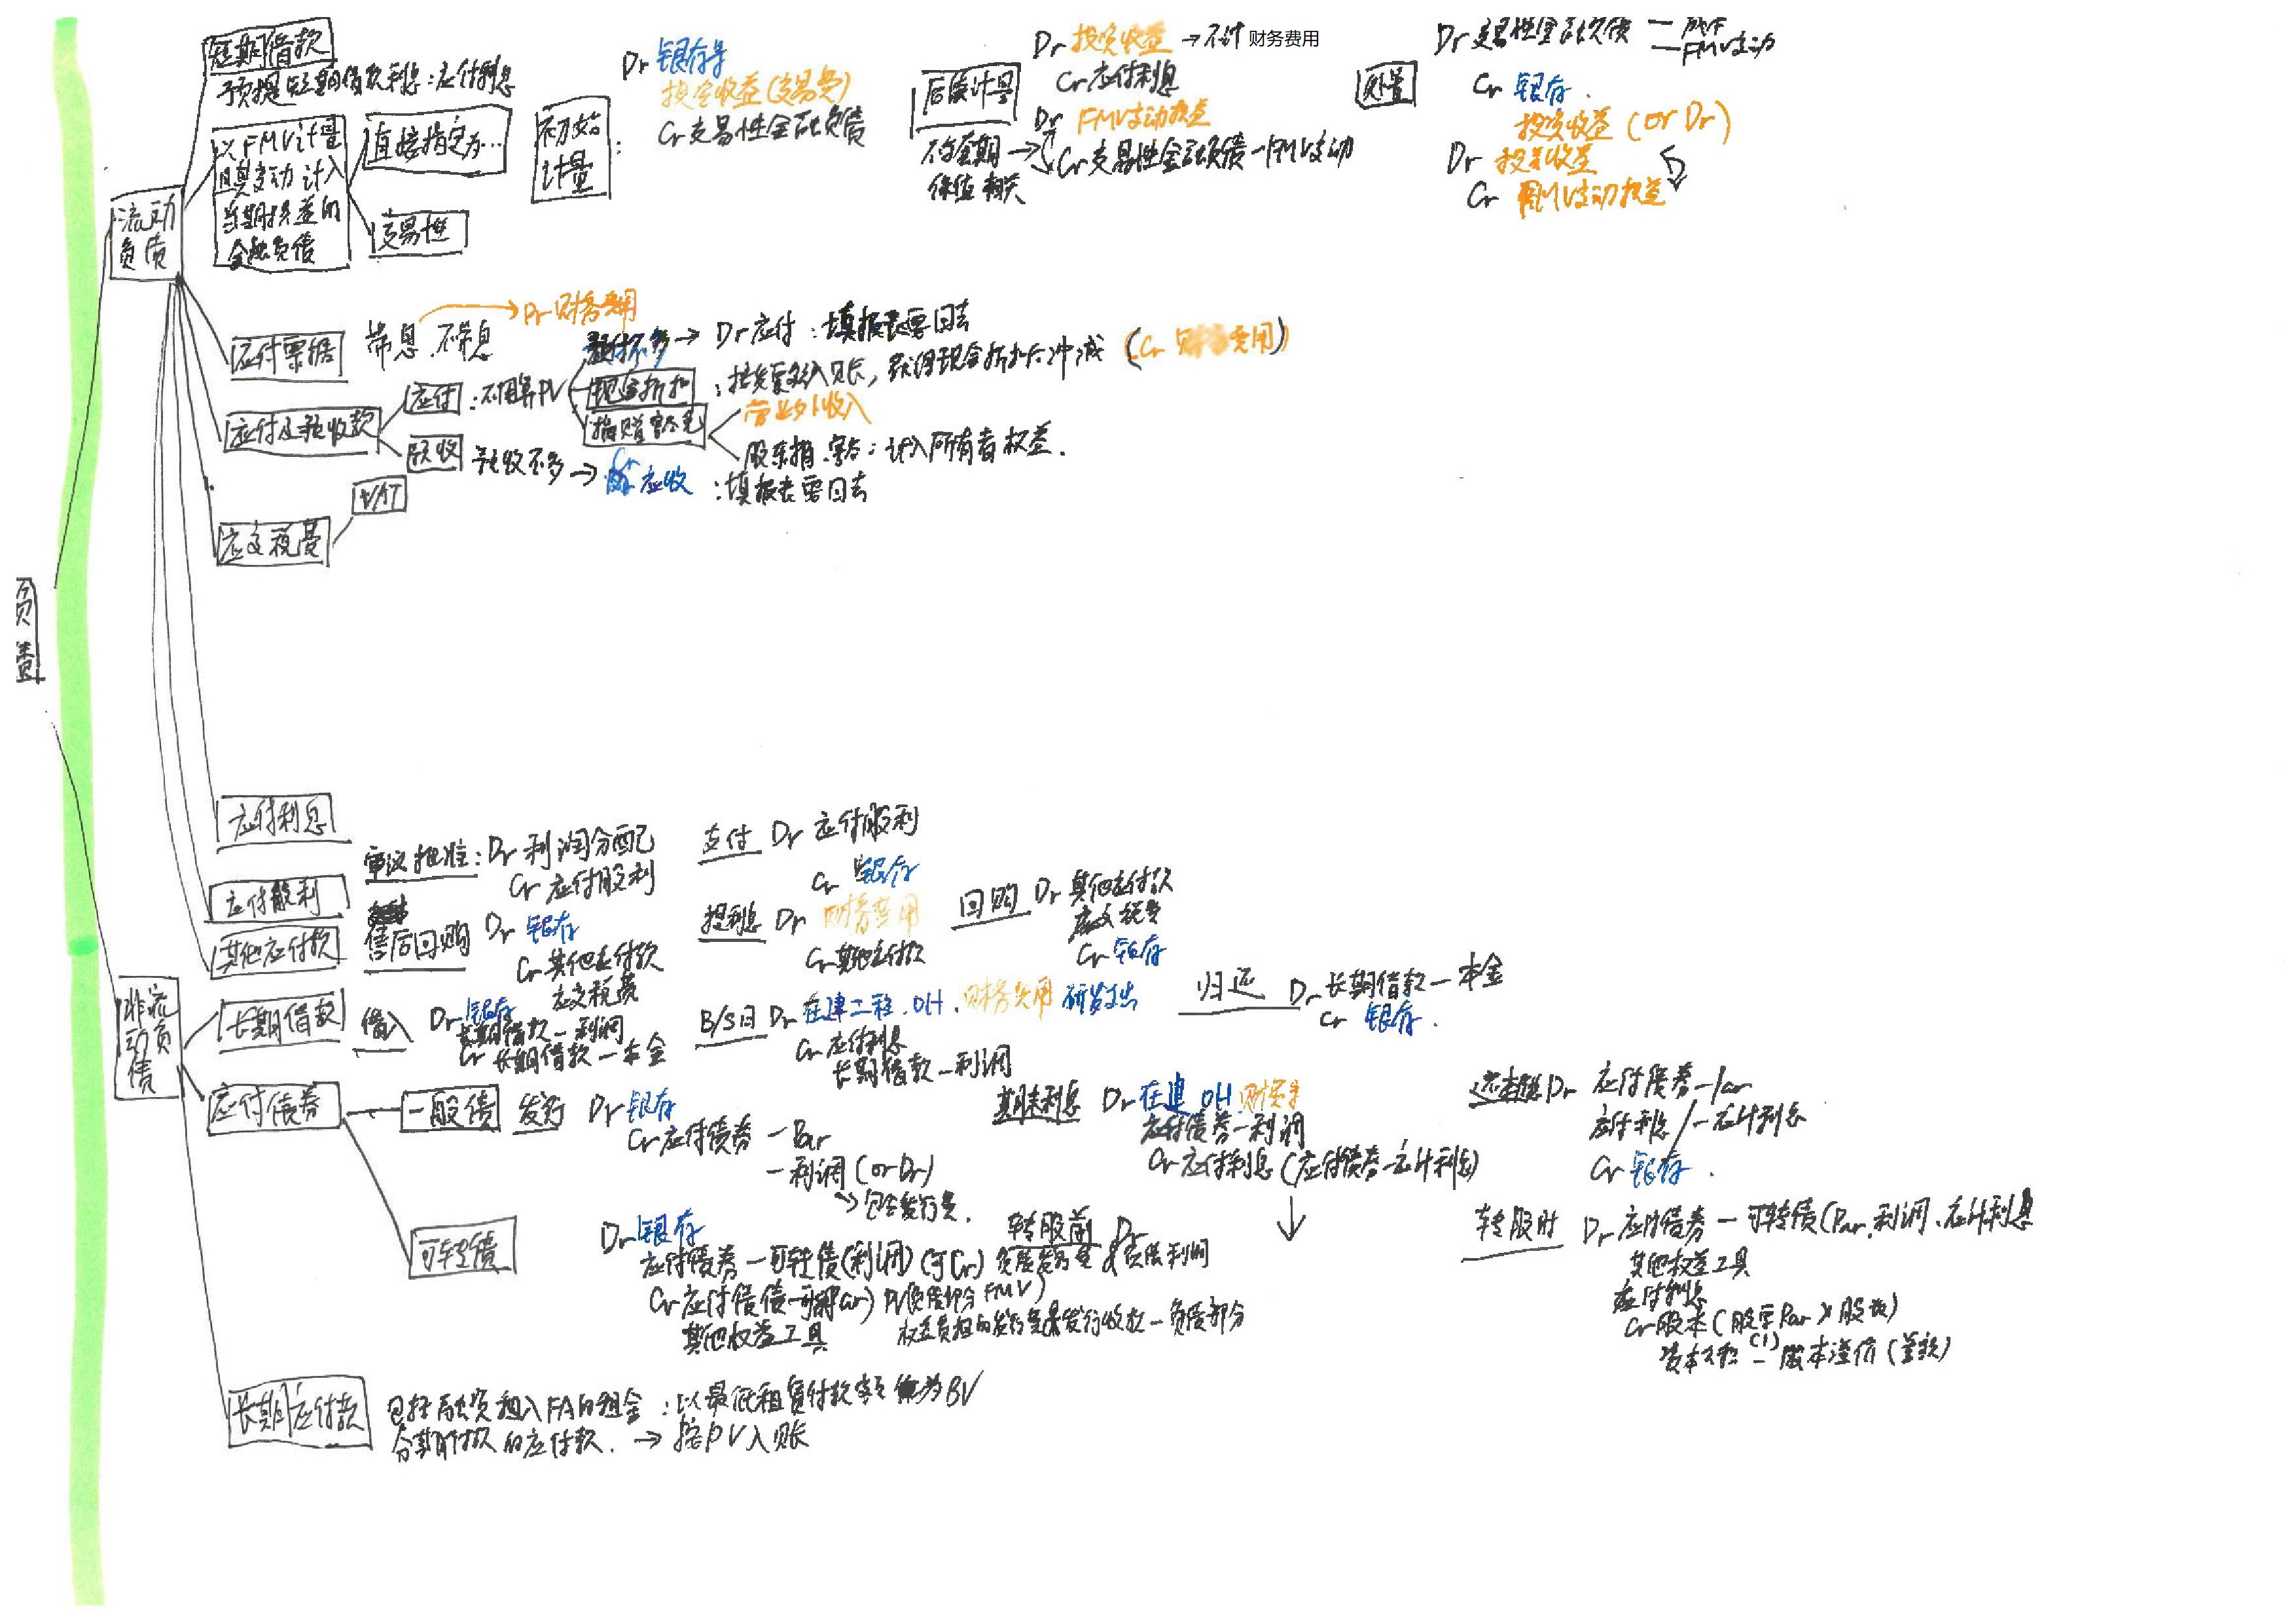 负债
流动负债
短期借款
预提短期借款利息：应付利息
以FMV计量
且其变动计入
当期损益的
金融负债
直接指定为…
交易性
初始计量：
Dr 银存等
投资收益(交易费)
Cr 交易性金融负债
后续计量
Dr 投资收益 → 不计 财务费用
Cr 应付利息
Dr FMV变动损益
Cr 交易性金融负债—FMV变动
不含套期 →
保值相关
处置
Dr 交易性金融负债 — 成本
— FMV变动
Cr 银存.
投资收益 (or Dr)
Dr 投资收益
Cr FMV变动损益
应付票据
带息.不带息
→ Dr 财务费用
应付及预收款
应付：不用算PV
预付不多 → Dr 应付：填报表要回去
现金折扣：按发票入账，取得现金折扣冲减 (Cr 财务费用)
捐赠
营业外收入
股东捐.豁：计入所有者权益.
预收 预收不多 → Cr 应收：填报表要回去
应交税费
VAT
应付利息
应付股利
审议批准：Dr 利润分配
Cr 应付股利
支付 Dr 应付股利
Cr 银存
其他应付款
售后回购 Dr 银存
Cr 其他应付款
应交税费
提利息 Dr 财务费用
Cr 其他应付款
回购 Dr 其他应付款
应交税费
Cr 银存
非流动负债
长期借款
借入 Dr 银存
长期借款—利调
Cr 长期借款—本金
B/S日 Dr 在建工程.OH.财务费用 研发支出
Cr 应付利息
长期借款—利调
归还 Dr 长期借款—本金
Cr 银存.
应付债券
一般债 发行 Dr 银存
Cr 应付债券 — Par
— 利调 (or Dr)
→ 包含发行费.
期末利息 Dr 在建 OH 财费等
应付债券—利调
Cr 应付利息 (应付债券—应计利息)
还本息 Dr 应付债券—Par
应付利息/—应计利息
Cr 银存.
可转债
Dr 银存
应付债券—可转债(利调) (可Cr)
其他权益工具
转股前 Dr
转股时 Dr 应付债券—可转债(Par.利调.应计利息
其他权益工具
应付利息
Cr 股本 (股字Par×股数)
资本公积(1)—股本溢价 (差额)
长期应付款
包括融资租入FA的租金：以最低租赁付款额作为BV
分期付款的应付款. → 按PV入账